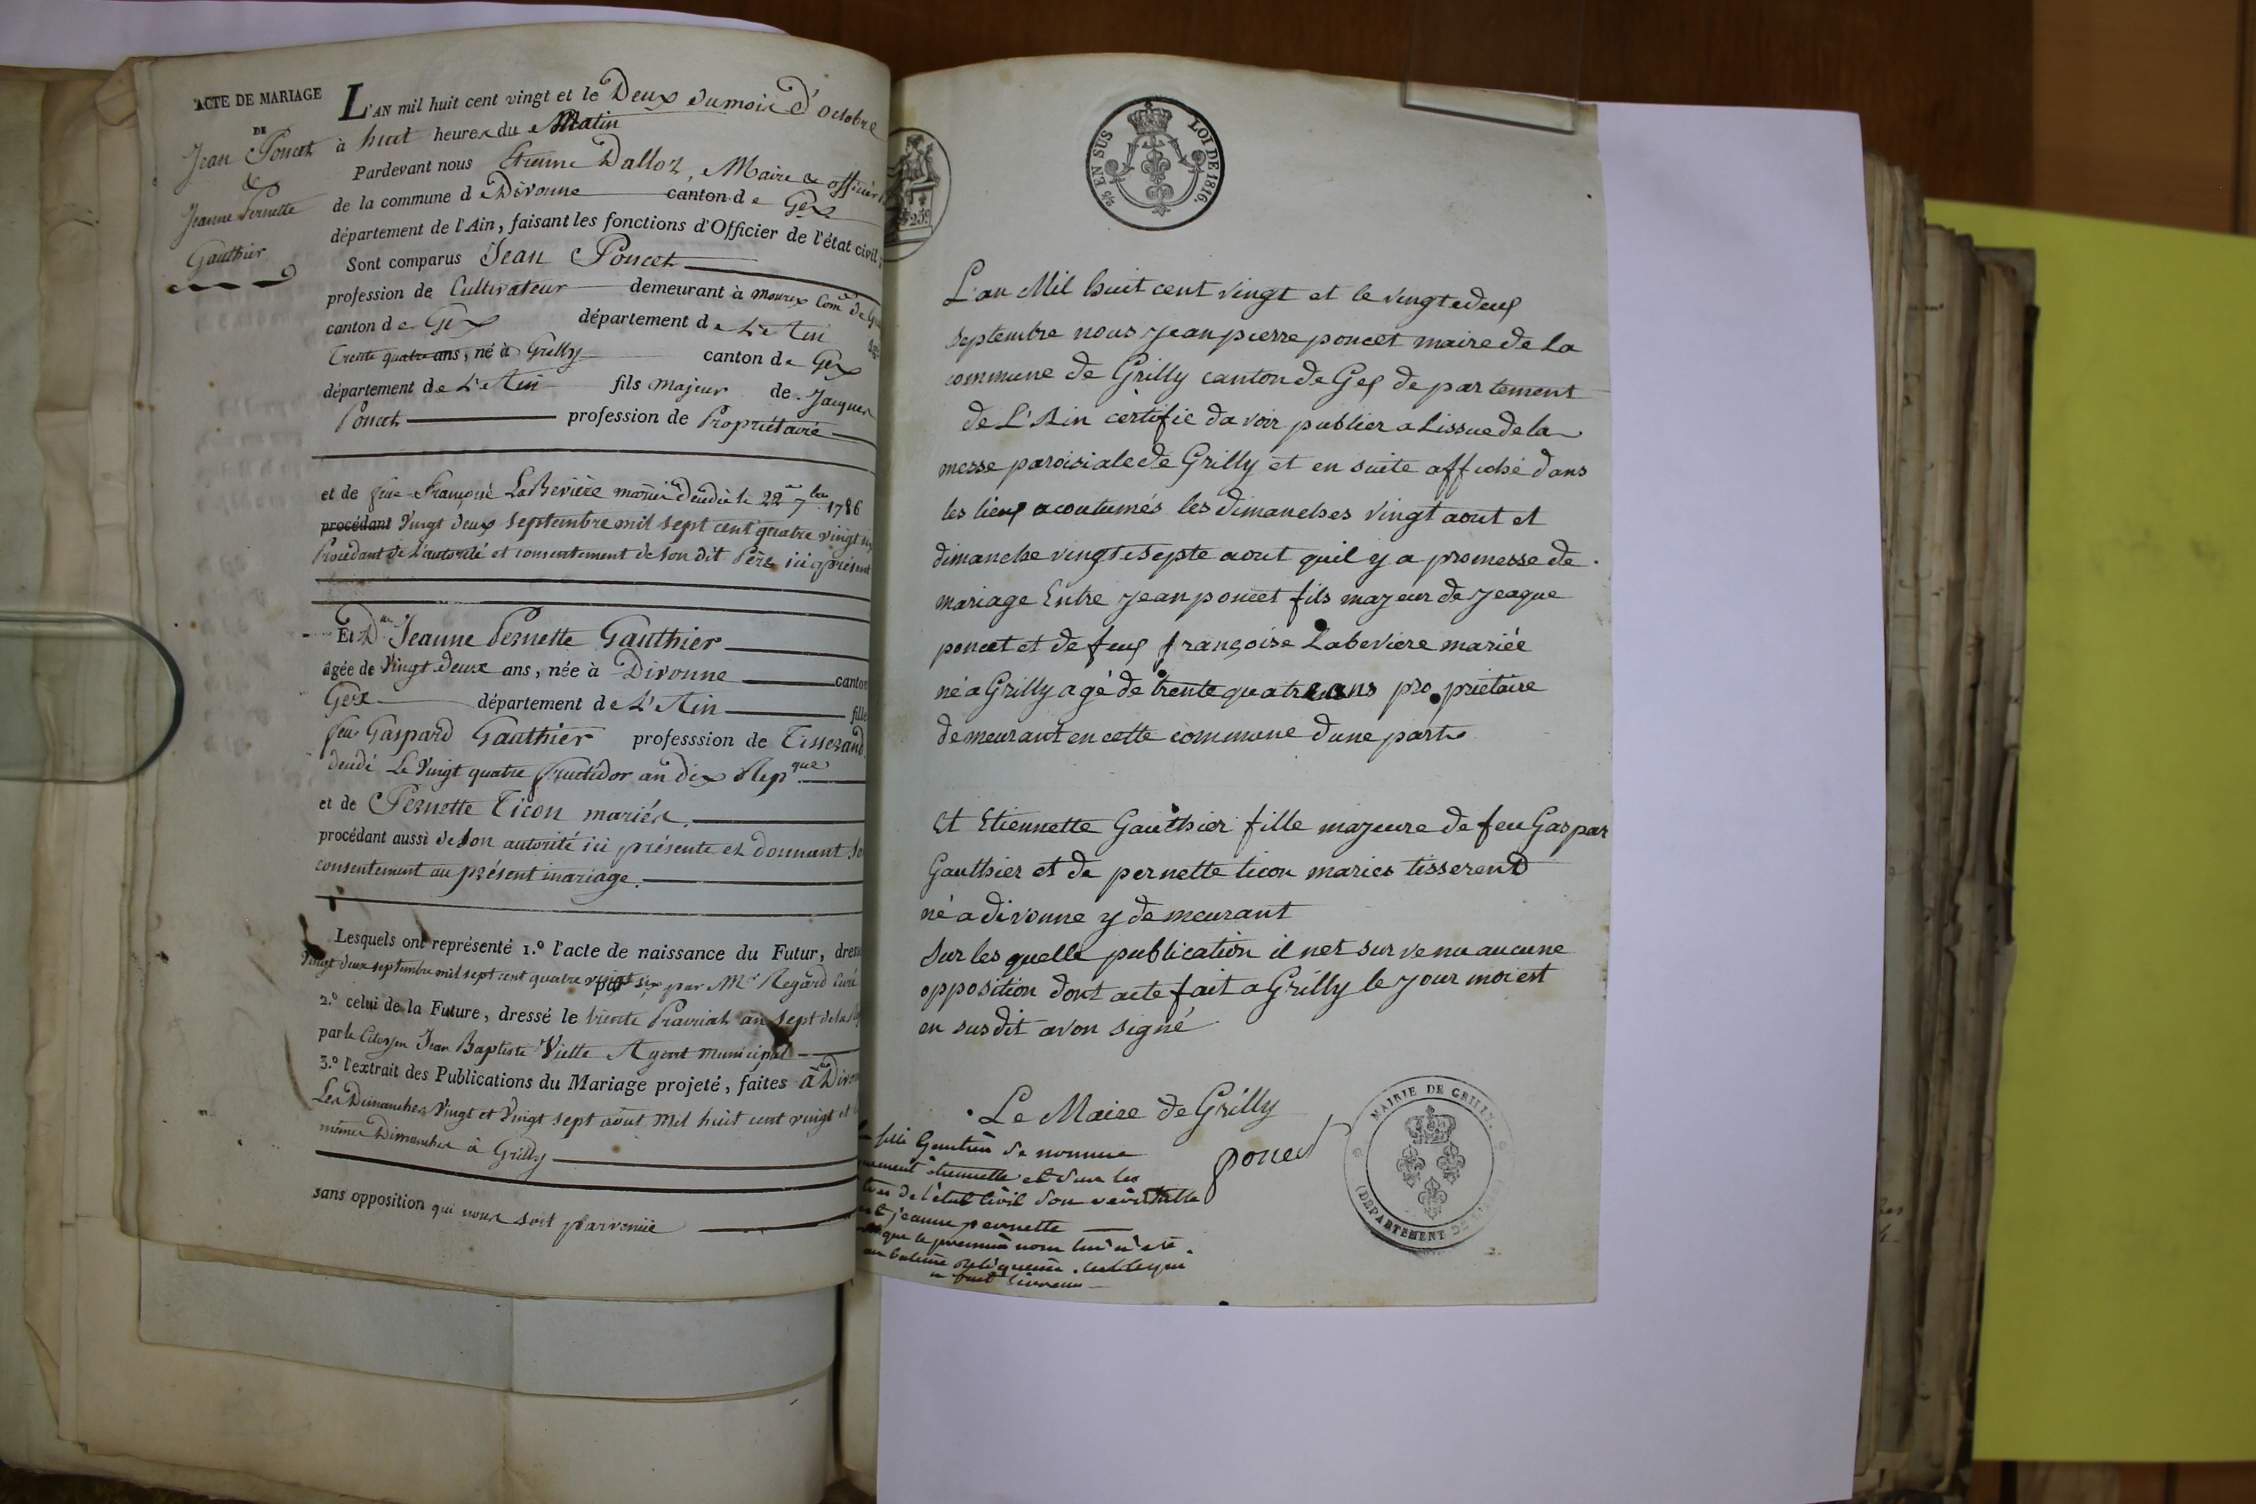 ACTE DE MARIAGE
DE
Jean Poncet
&
Jeanne Pernette
Gauthier
L'AN mil huit cent vingt et le Deux du mois d'Octobre
à huit heures du Matin
Pardevant nous Etienne Dalloz, Maire & officier
de la commune de Divonne canton de Gex
département de l'Ain, faisant les fonctions d'Officier de l'état civil,
Sont comparus Jean Poncet
profession de Cultivateur demeurant à Mourex Com.e de
canton de Gex département de L'Ain
trente quatre ans, né à Grilly canton de Gex
département de L'Ain fils majeur de Jacques
Poncet profession de Propriétaire
et de feue Françoise LaBevière mariés décédée le 22 7bre 1786
procédant Vingt deux septembre mil sept cent quatre vingt six
Procédant de L'autorité et consentement de son dit Père ici présent
Et D.lle Jeanne Pernette Gauthier
âgée de Vingt deux ans, née à Divonne canton
Gex département de L'Ain fille
feu Gaspard Gauthier professsion de Tisserand
décédé Le Vingt quatre fructidor an dix Rep.que
et de Pernette Ticon mariés.
procédant aussi de son autorité ici présente et donnant so
consentement au présent mariage.
Lesquels ont représenté 1.º l'acte de naissance du Futur, dressé
Vingt deux septembre mil sept cent quatre vingt six par Mr Regard Curé
2.º celui de la Future, dressé le trente Prairial an sept de la
par le Citoyen Jean Baptiste Vielle Agent municipal
3.º l'extrait des Publications du Mariage projeté, faites à Divon
Les Dimanches Vingt et Vingt sept août Mil huit cent vingt et
mêmes Dimanches à Grilly
sans opposition qui nous soit parvenüe
EN SUS
LOI DE 1816
25c
L'an Mil huit cent vingt et le vingt e deux
septembre nous jean pierre poncet maire de La
commune de Grilly canton de Gex de partement
de L'Ain certifie da voir publier a Lissue de la
messe paroisiale de Grilly et en suite affiché dans
les lieux acoutumés les dimanches vingt aout et
dimanche vingt e septe aout quil y a promesse de
mariage Entre jean poncet fils majeur de jeaque
poncet et de feux françoise Labeviere mariée
né a Grilly agé de trente quatre ans pro prietaire
demeurant en cette commune dune part
et Etiennette Gauthier fille majeure de feu Gaspar
Gauthier et de pernette ticon maries tisserend
né a divonne y demeurant
Sur les quelle publication il net sur ve nu aucune
opposition dont acte fait a Grilly le jour moi est
en susdit avon signé
Le Maire de Grilly
poncet
MAIRIE DE GRILLY
(DEPARTEMENT DE
fille Gautier se nomme
etiennette et sur les
de l'état Civil son véritable
jeanne pernette
que le premier nom lui